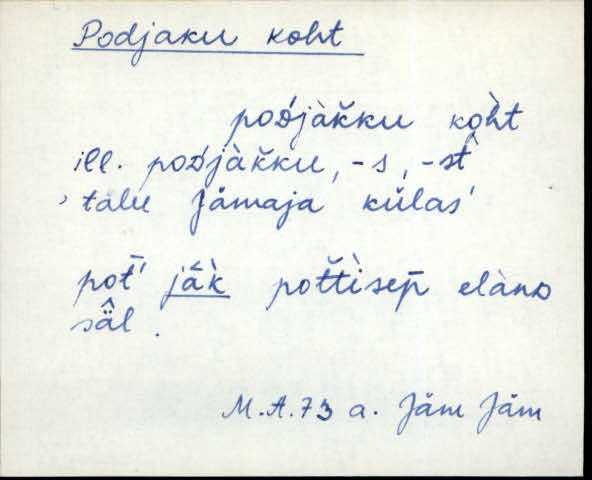 Podjaku koht
poďjàk̆ku kòh̀t
ill. poďjàk̆ku, -s, -st̀
'talu Jämaja külas'
pot̄' jä̀k̀ pot̆t̀isep̄ elànᴅ
sä̂l.
M.A.73 a. Jäm Jäm